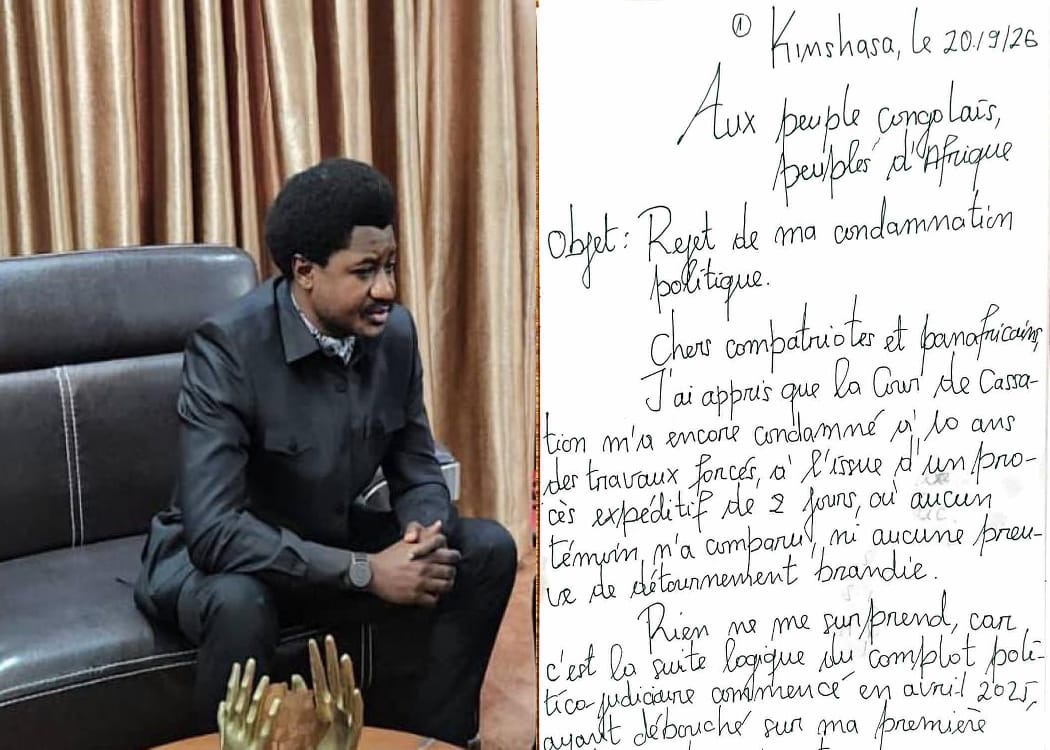 ①
Kinshasa, le 20/9/26
Aux peuple congolais,
peuples d'Afrique
Objet : Rejet de ma condamnation
politique.
Chers compatriotes et panafricains,
J'ai appris que la Cour de Cassa-
tion m'a encore condamné à 10 ans
des travaux forcés, à l'issue d'un pro-
cès expéditif de 2 jours, où aucun
témoin n'a comparu, ni aucune preu-
ve de détournement brandie.
Rien ne me surprend, car
c'est la suite logique du complot poli-
tico-judiciaire commencé en avril 2025,
ayant débouché sur ma première